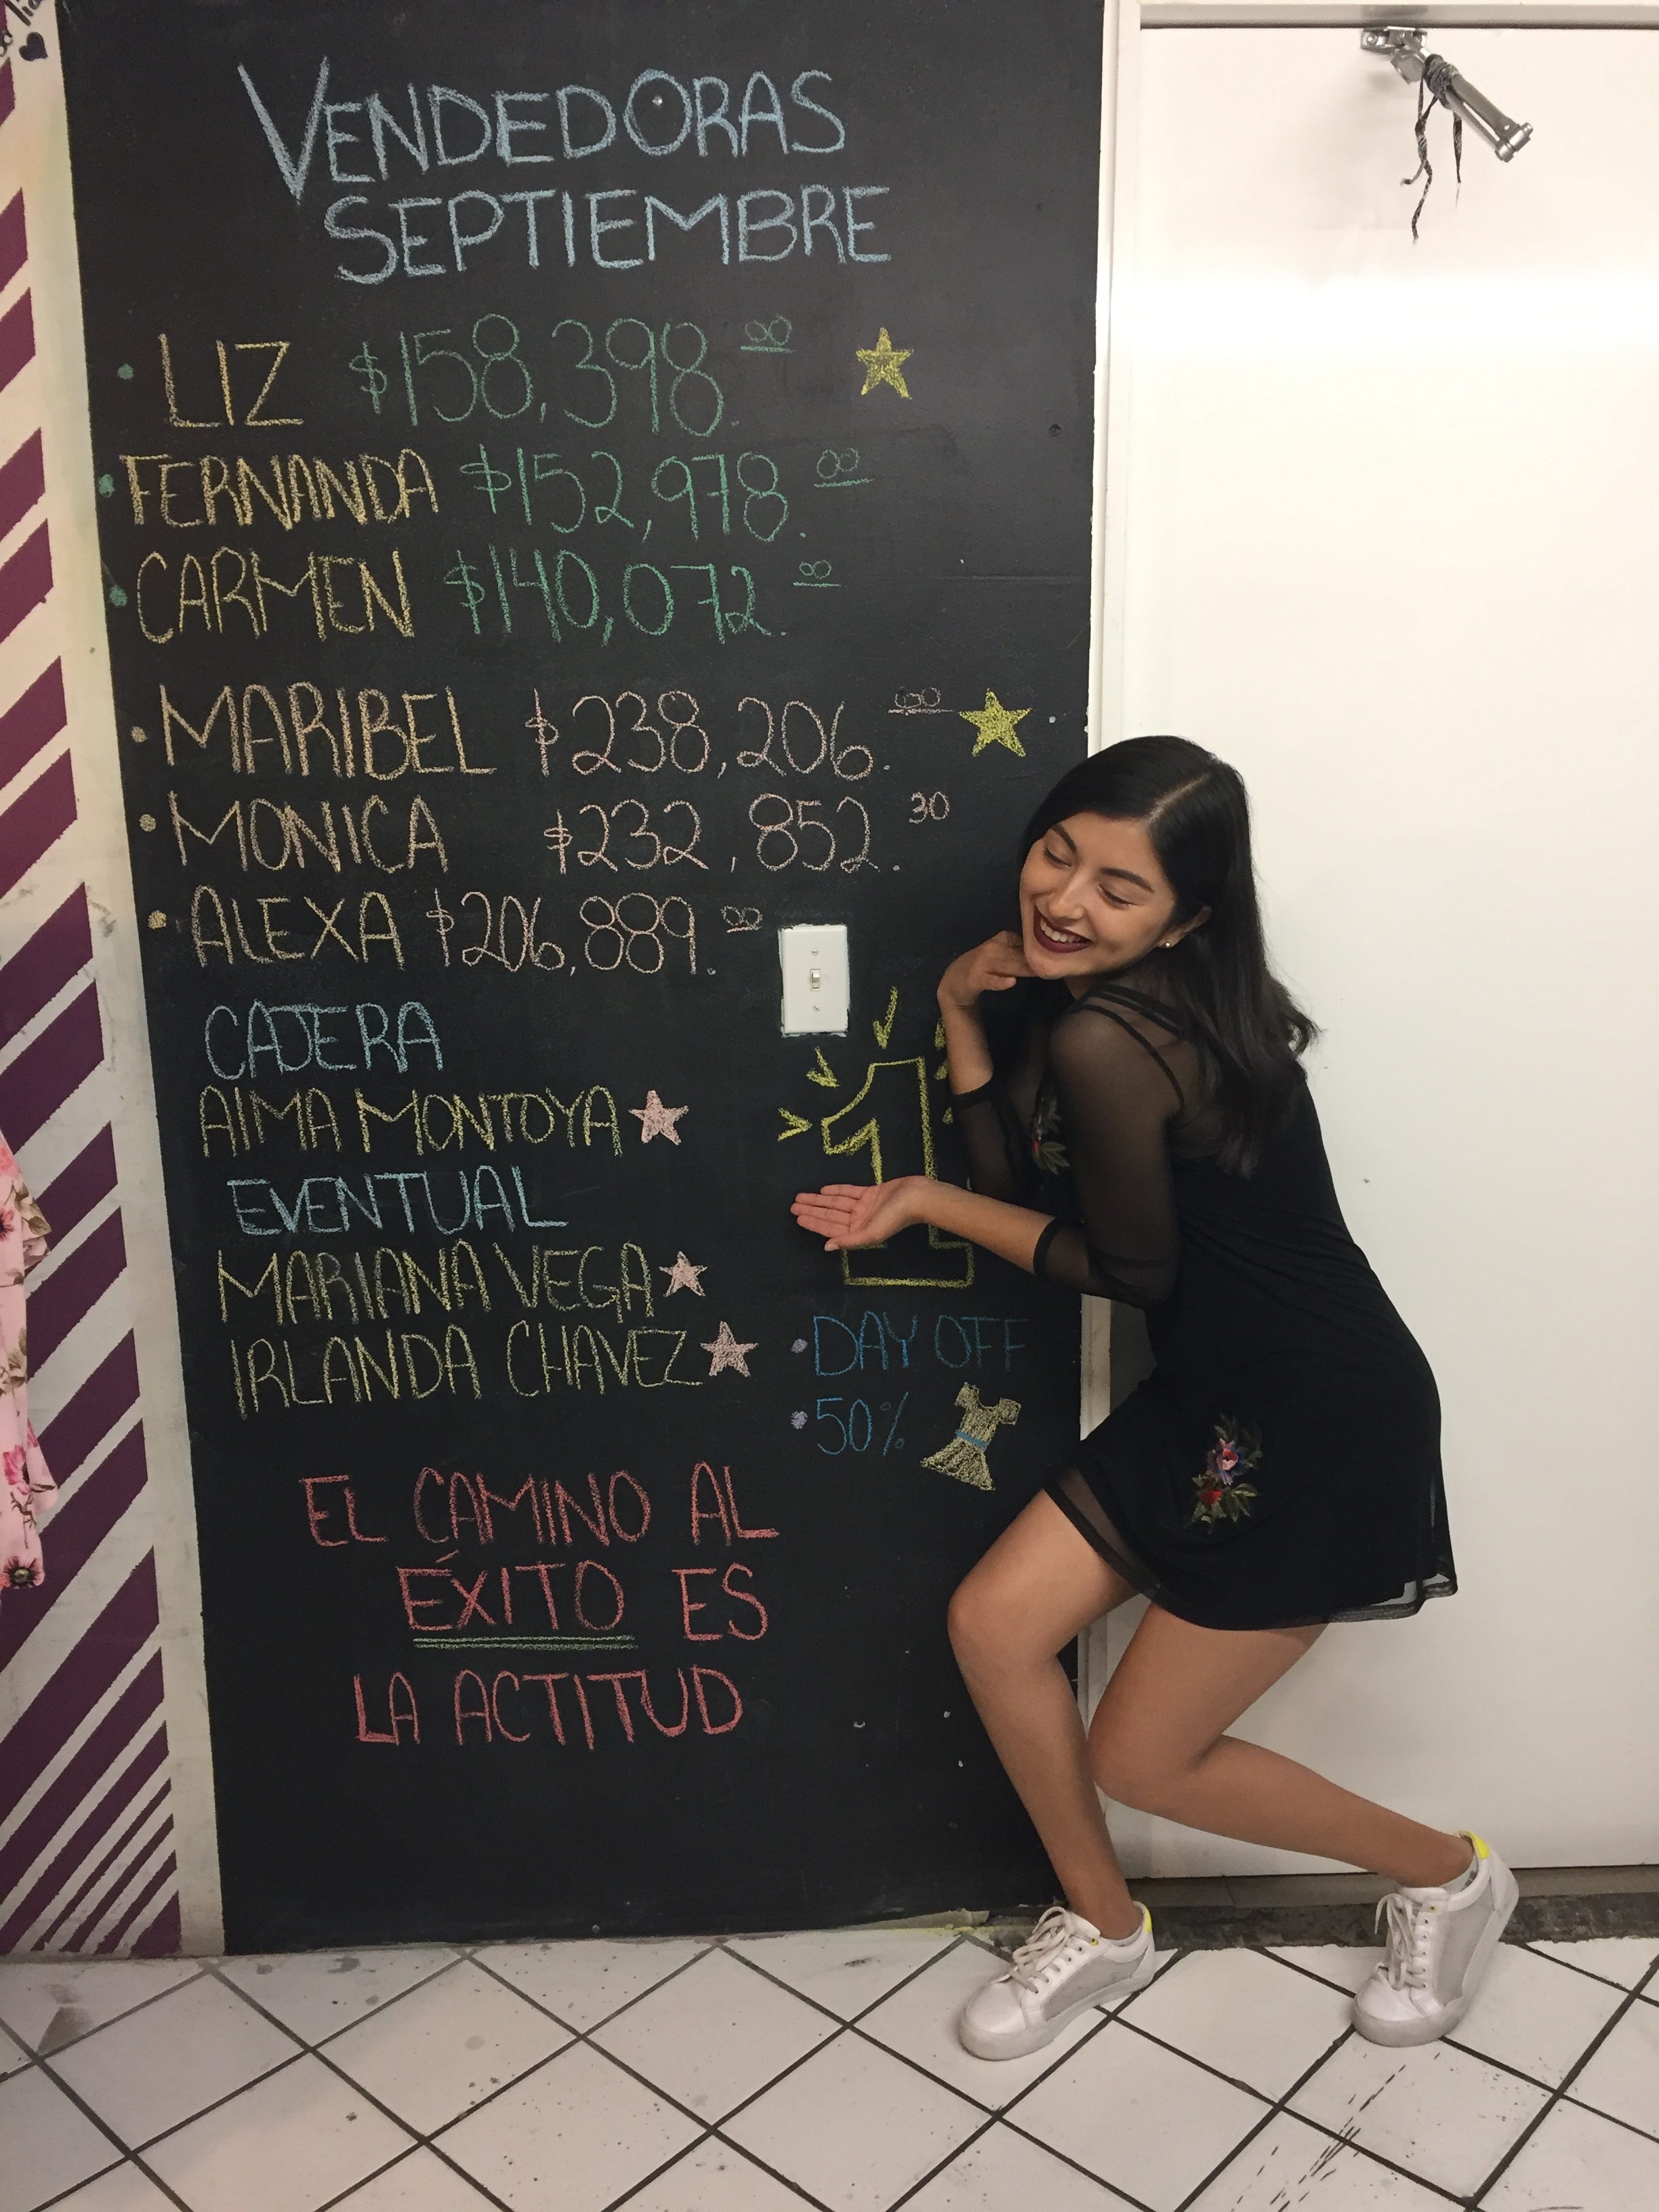 VENDEDORAS
SEPTIEMBRE
• LIZ $158,398.00
• FERNANDA $152,978.00
• CARMEN $140,072.00
• MARIBEL $238,206.00
• MONICA $232,852.30
• ALEXA $206,889.00
CAJERA
AlMA MONTOYA
EVENTUAL
MARIANA VEGA
IRLANDA CHAVEZ
1
• DAY OFF
• 50%
EL CAMINO AL
ÉXITO ES
LA ACTITUD